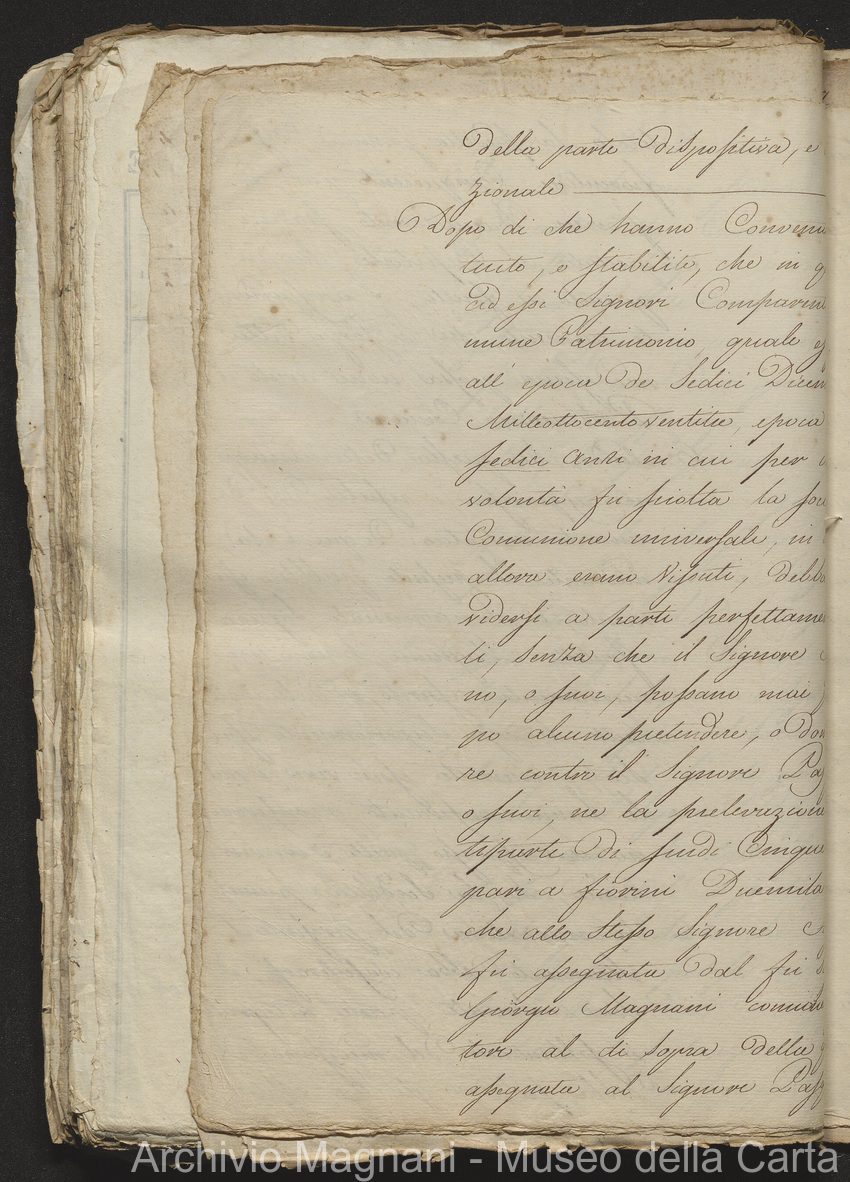 della parte dispositiva, e
zionale
Dopo di che hanno Conven
tuito, e stabilito, che in q
ad essi Signori Comparen
mune Patrimonio, quale e
all' epoca de Sedici Dicem
Milleottocentoventitre, epoca
sedici Anni in cui per
volontà fu sciolta la so
Comunione universale, in
allora erano vissuti, debba
vidersi a parte perfettame
li, senza che il Signore
no, o suoi, possano mai
po alcuno pretendere, o Dom
re contro il Signore Pas
o suoi, ne la prelevazione
tiparte di scudi Cinque
pari a fiorini Duemila
che allo stesso Signore
fu assegnata dal fu
Giorgio Magnani comune
tore al di sopra della
assegnata al Signore Pasq
Archivio Magnani - Museo della Carta